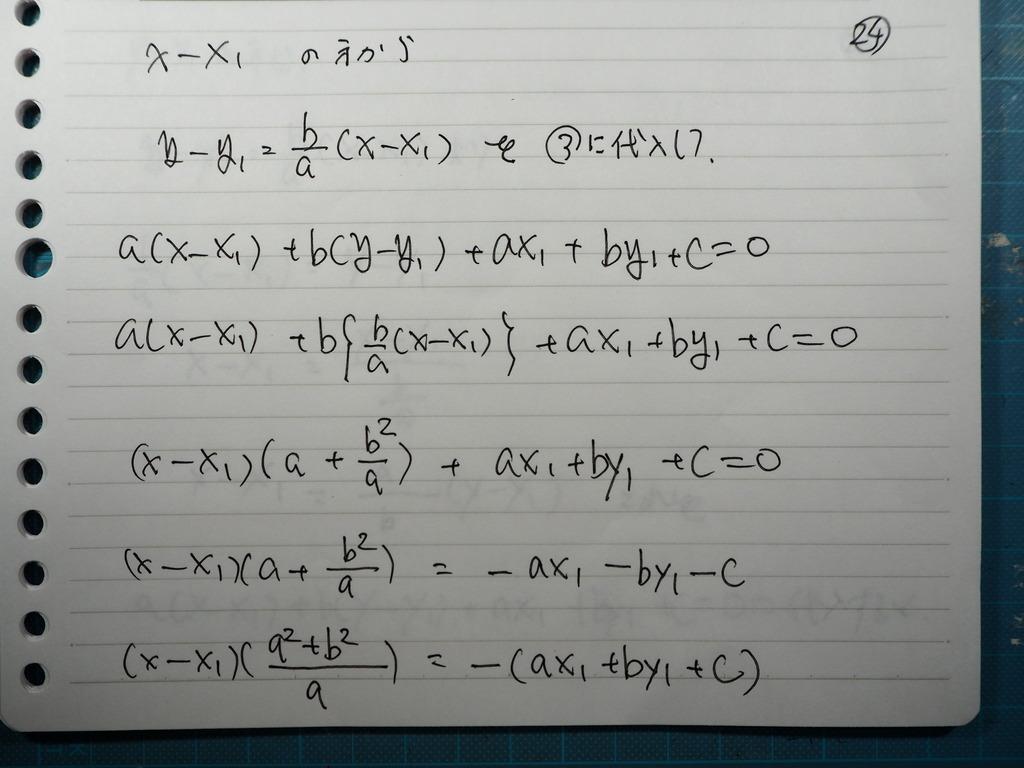 ㉔
x-x₁ の方から
y-y₁ = b/a (x-x₁) を ③に代入して.
a(x-x₁) + b(y-y₁) + ax₁ + by₁ + c = 0
a(x-x₁) + b{b/a (x-x₁)} + ax₁ + by₁ + c = 0
(x-x₁)(a + b²/a) + ax₁ + by₁ + c = 0
(x-x₁)(a + b²/a) = -ax₁ - by₁ - c
(x-x₁)((a²+b²)/a) = -(ax₁ + by₁ + c)